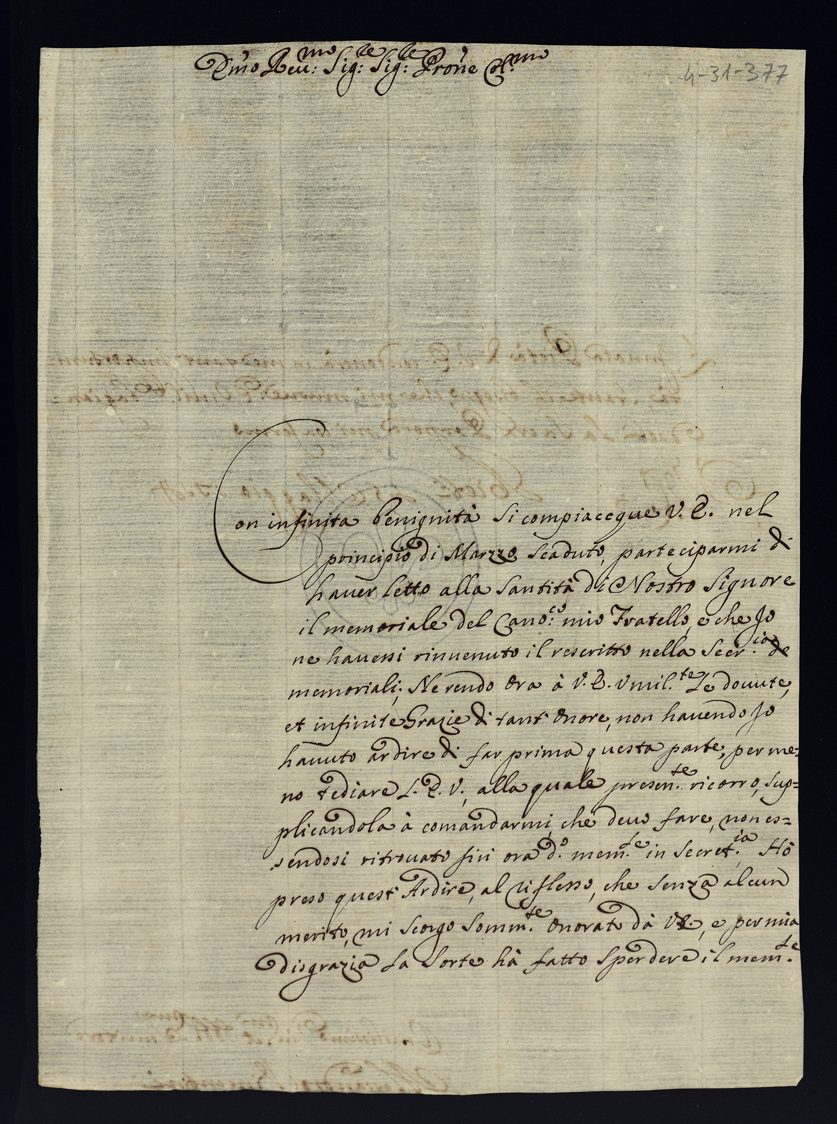 Em̃o Reu:mo Sig:re Sig:re Prone Col:mo
4-31-377
Con infinita benignità si compiacque V. E. nel
principio di Marzo scaduto, parteciparmi di
hauer letto alla Santità di Nostro Signore
il memoriale del Cano:co mio Fratello, e che Jo
ne hauessi rinuenuto il rescritto nella Secr:ia de
memoriali; Ne rendo ora à V. E. Vmil:te Le douute,
et infinite Grazie di tant' onore, non hauendo Jo
hauuto ardire di far prima questa parte, per me=
no tediare L. E. V., alla quale presen:te ricorro, sup=
plicandola à comandarmi, che deuo fare, non es=
sendosi ritrouato fin ora d:o mem:le in Secret:ia, Hò
preso quest' Ardire, al riflesso, che senza alcun
merito, mi scorgo Somm:te onorato dà VE, e per mia
disgrazia La Sorte hà fatto sperdere il mem:le